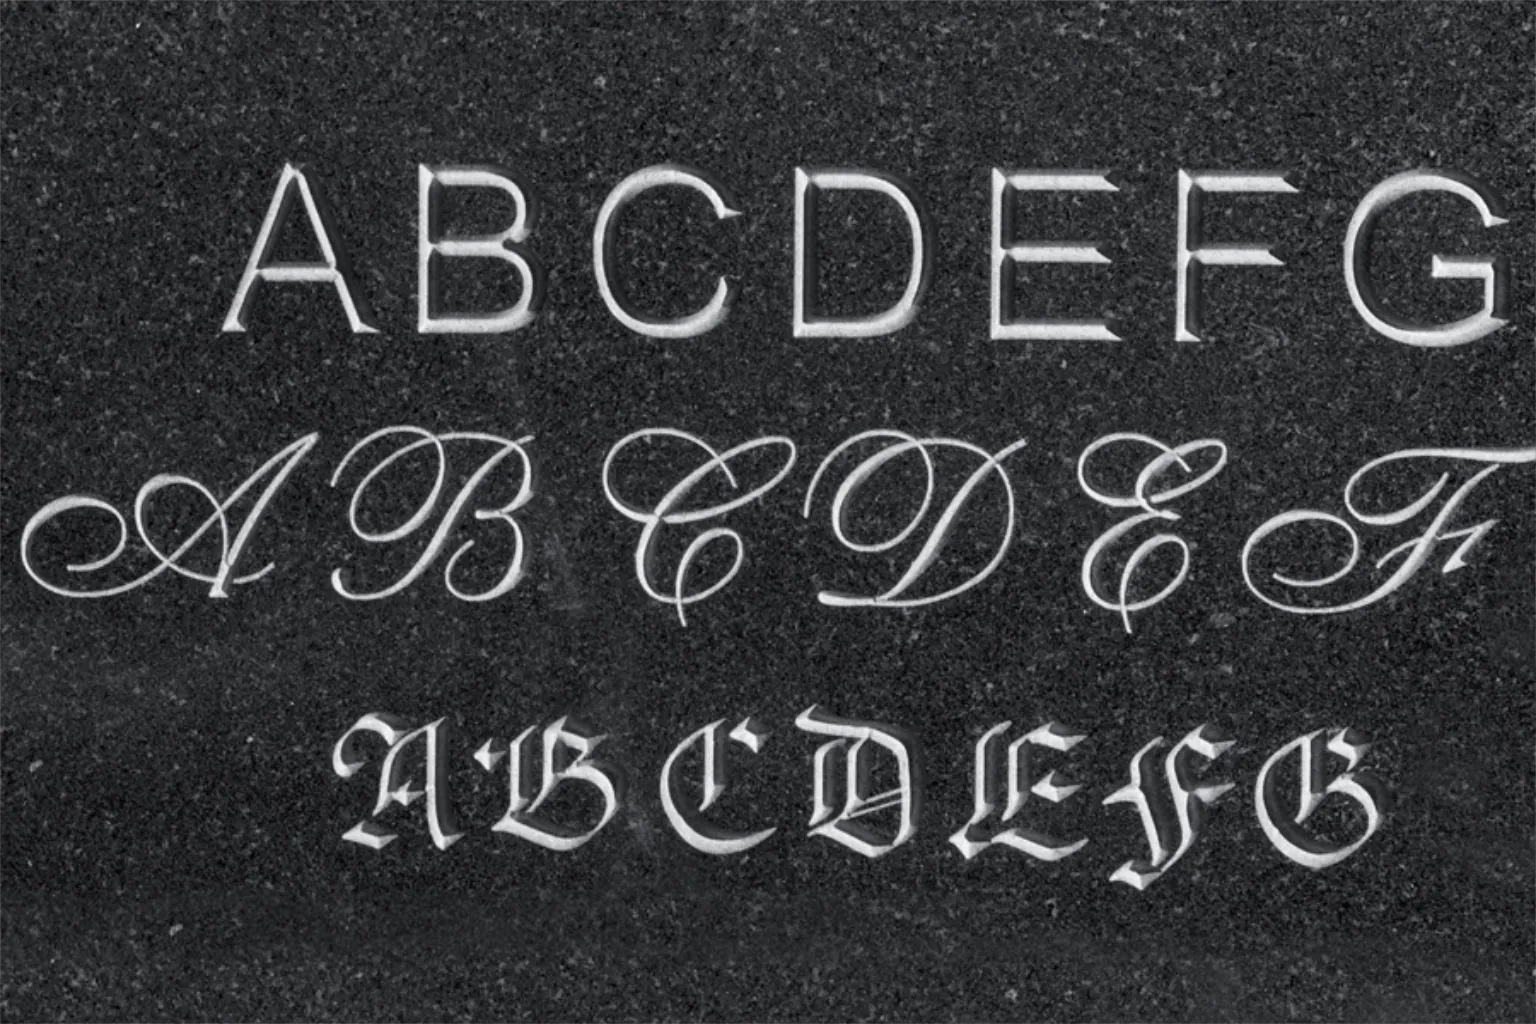 ABCDEFG
ABCDEF
ABCDEFG